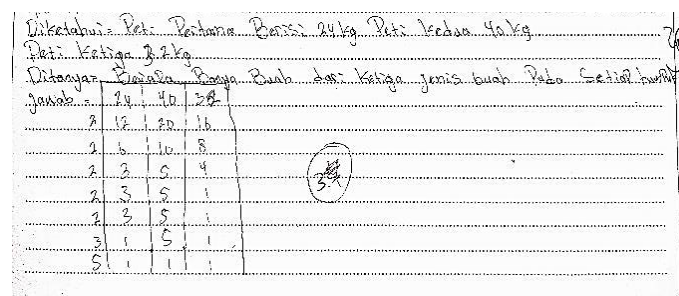 Diketahui = Peti Pertama Berisi 24 kg Peti kedua 40 kg
Peti ketiga 32 kg
Ditanya = Berapa Banya Buah dari ketiga jenis buah Pada Setiap
Jawab = 24 40 32
2 12 20 16
2 6 10 8
2 3 5 4
2 3 5 1
2 3 5 1
3 1 5 1
5 1 1 1